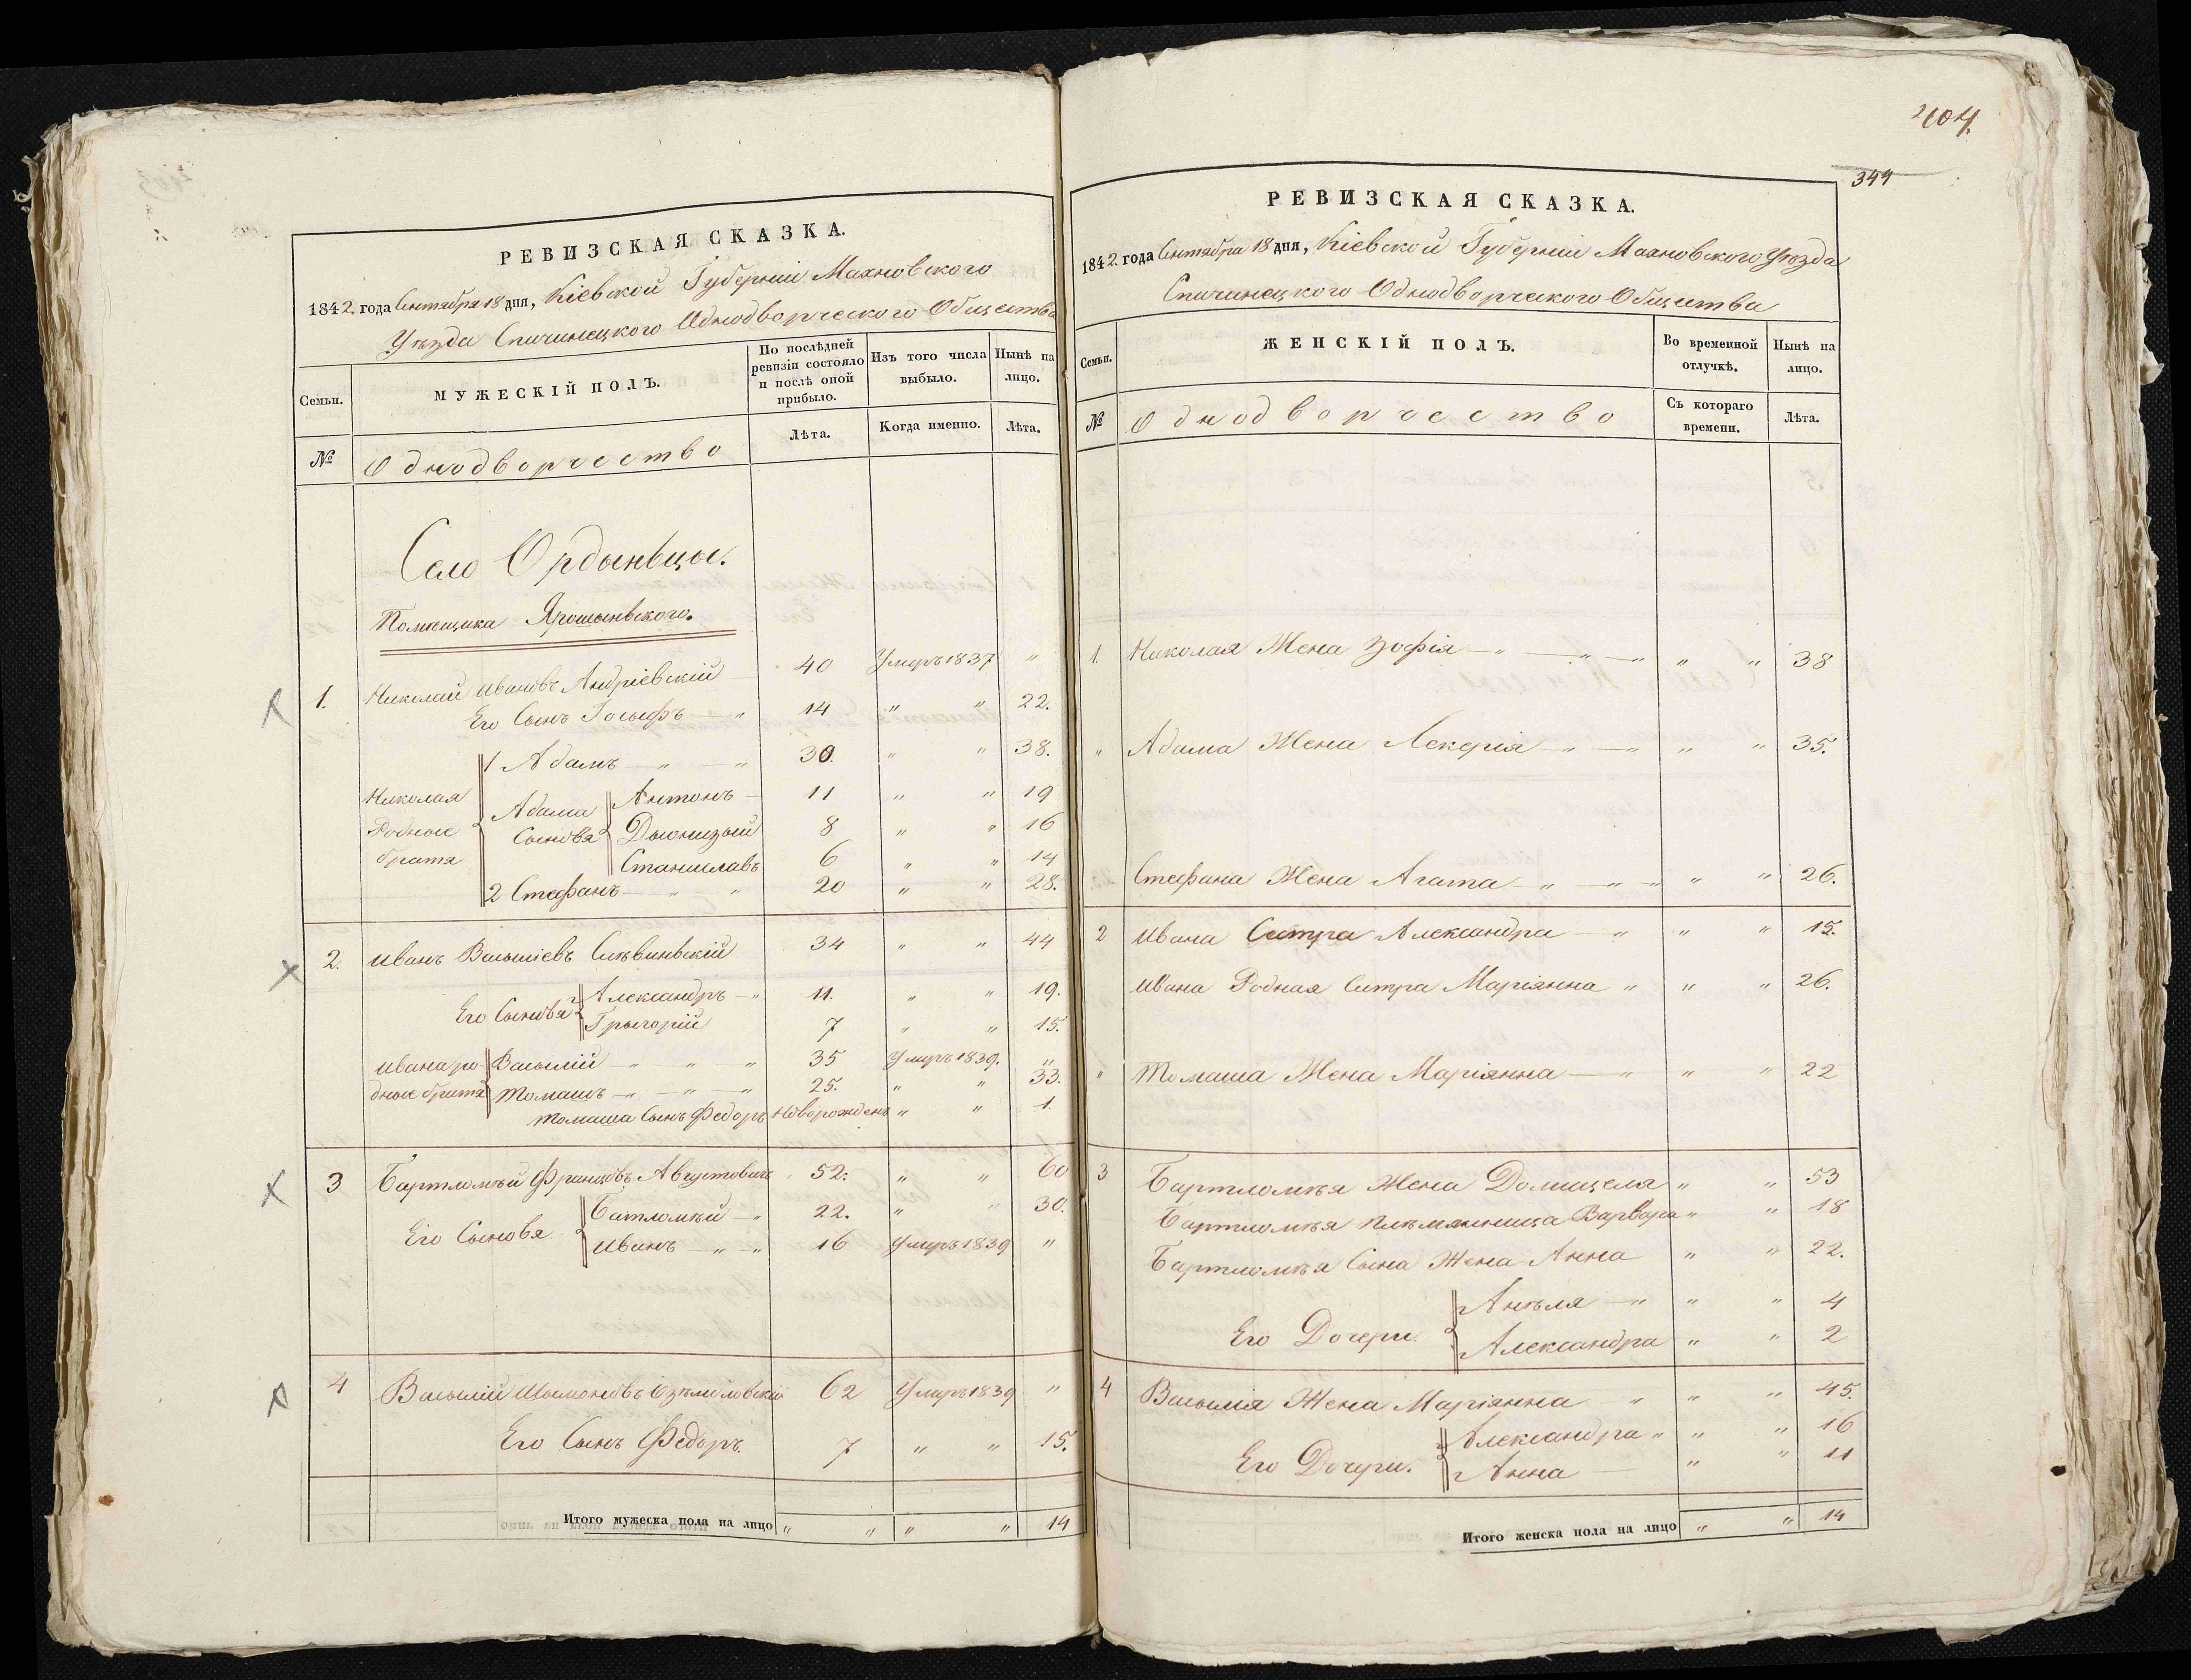 РЕВИЗСКАЯ СКАЗКА.
1842 года Сентября 18 дня, Кіевской Губерніи Махновского
Уѣзда Спичинецкого Однодворческого Общества
Семьи.
МУЖЕСКІЙ ПОЛЪ.
По послѣдней ревизіи состояло и послѣ оной прибыло.
Изъ того числа выбыло.
Нынѣ на лицо.
№
Однодворчество
Лѣта.
Когда именно.
Лѣта.
Село Ордынвцы.
Помѣщика Ярошынвского.
1. Николай Ивановъ Андріевскій 40 Умеръ 1837 "
Его Сынъ Іосыфъ — " 14 " " 22.
Николая Родные братя
1 Адамъ — " — " 30. " " 38.
Адама Сыновя
Антонъ — 11 " " 19
Дыонизый 8 " " 16
Станиславъ 6 " " 14
2 Стефанъ — " " 20 " " 28.
2. Иванъ Васылiевъ 34 " " 44
Его Сыновя
Александръ — " 11. " " 19.
Грыгорій 7 " " 15.
Ивана родные братя
Васылій — " " " 35 Умеръ 1839. "
Томашъ — " — " — " 25. " " 33.
Томаша Сынъ Федоръ Новорожденъ " " 1.
3 Бартломѣй Францовъ Августовичъ 52. " " 60
Его Сыновя
Батломѣй — " 22. " " 30.
Иванъ — " — " 16 Умеръ 1839 "
4 Васылій Шымоновъ 62 Умеръ 1839 "
Его Сынъ Федоръ. 7 " " 15.
Итого мужеска пола на лицо " " " " 14
404.
344
РЕВИЗСКАЯ СКАЗКА.
1842. года Сентября 18 дня, Кіевской Губерніи Махновского Уѣзда
Спичинецкого Однодворческого Общества
Семьи.
ЖЕНСКІЙ ПОЛЪ.
Во временной отлучкѣ.
Нынѣ на лицо.
№
Однодворчество
Съ котораго времени.
Лѣта.
1. Николая Жена Зофія — " — " — " " " 38
" Адама Жена Лекерія — " — " " " 35.
Стефана Жена Агата — " — " — " " " 26.
2 Ивана Сетра Александра — " " " 15.
Ивана Родная Сетра Маріянна " " " 26.
" Томаша Жена Маріянна — " " " 22
3 Бартломѣя Жена Домицеля " " 53
Бартломѣя племянница Варвара " " 18
Бартломѣя Сына Жена Анна " " 22.
Его Дочери.
Анѣля — " " " 4
Александра " " 2
4 Васылія Жена Маріянна " " " 45.
Его Дочери.
Александра " " " 16
Анна — " " 11
Итого женска пола на лицо " " 14